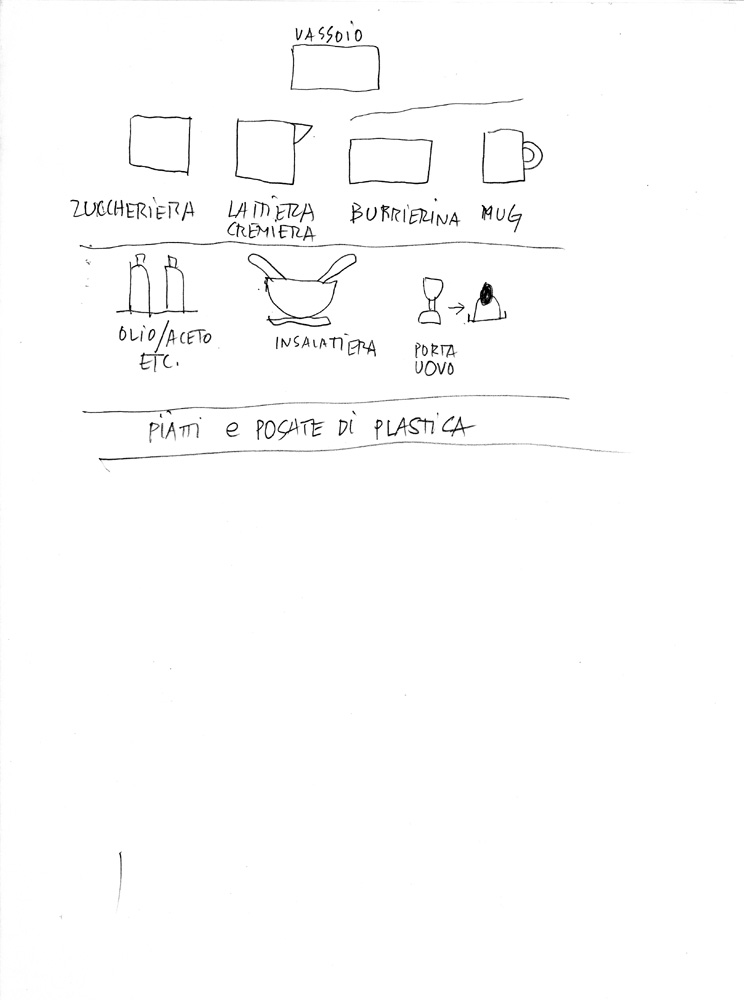 VASSOIO
ZUCCHERIERA
LATTIERA
CREMIERA
BURRIERINA
MUG
OLIO/ACETO
ETC.
INSALATIERA
PORTA
UOVO
PIATTI e POSATE DI PLASTICA